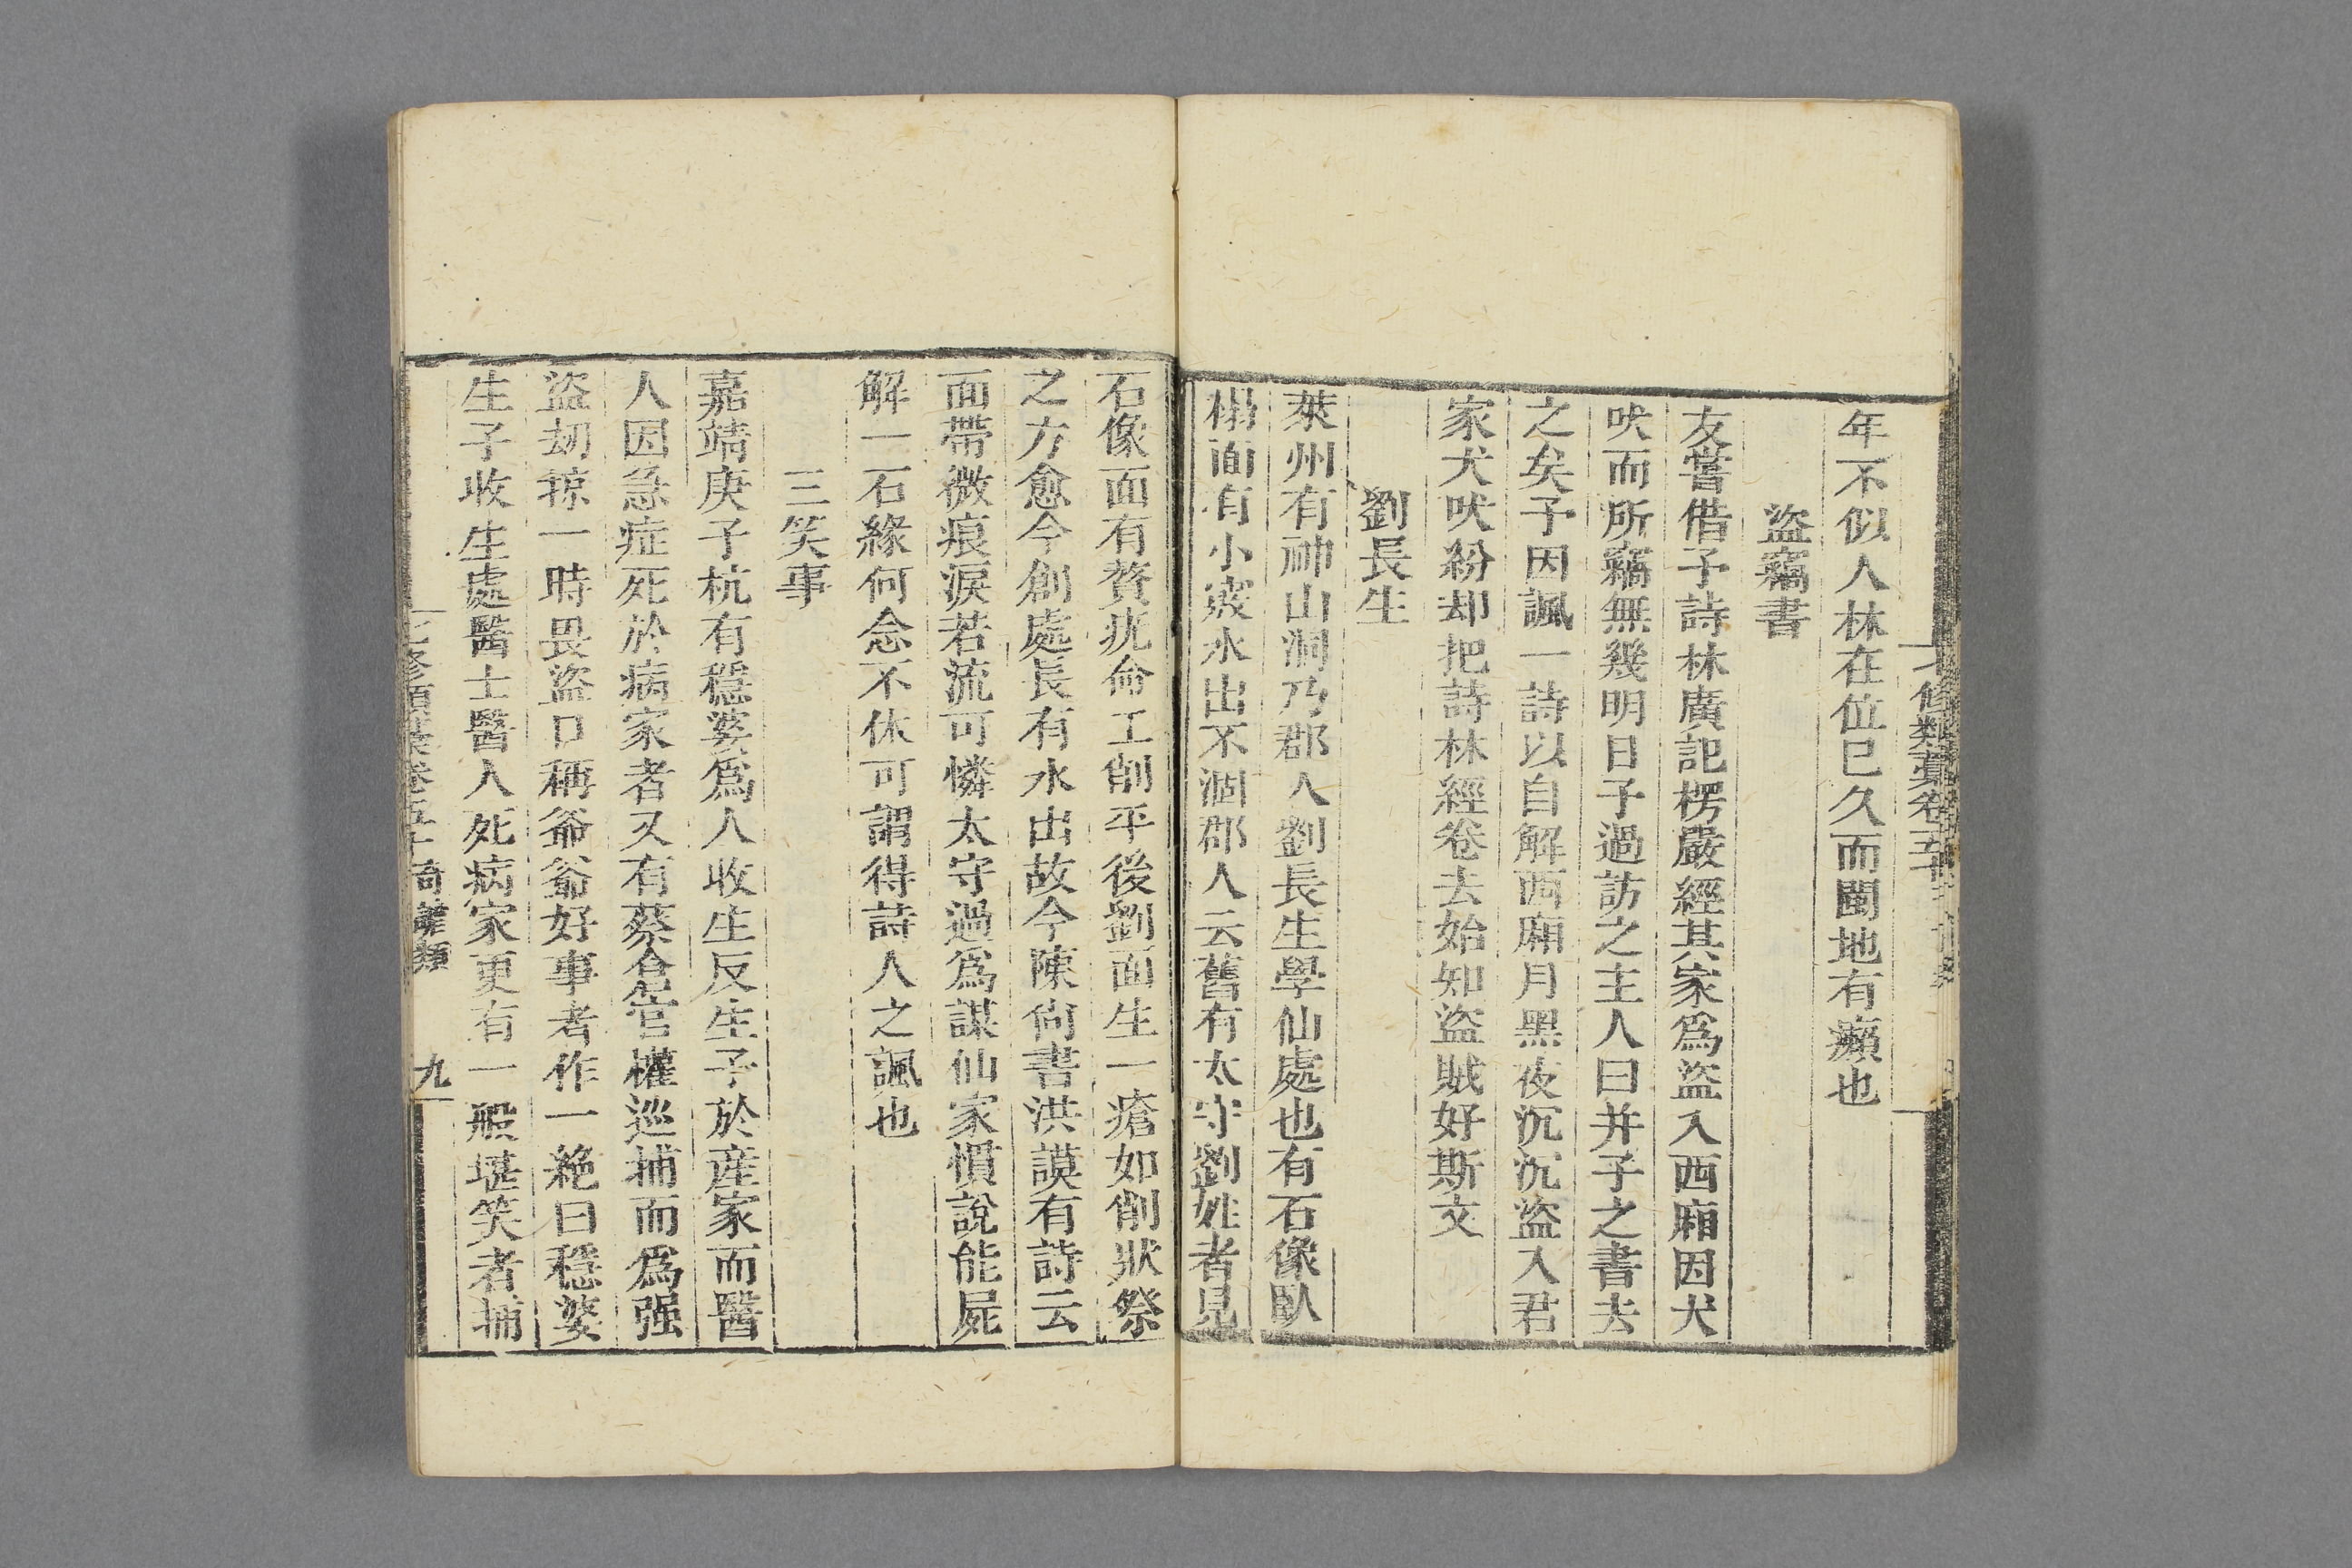 七修類藁卷五十
年不似人林在位已久而閩地有癩也
盜竊書
友嘗借予詩林廣記楞嚴經其家爲盜入西廂因犬
吠而所竊無幾明日予過訪之主人曰并子之書去
之矣予因諷一詩以自解西廂月黑夜沉沉盜入君
家犬吠紛却把詩林經卷去始知盜賊好斯文
劉長生
萊州有神山洞乃郡人劉長生學仙處也有石像臥
榻面有小窽水出不涸郡人云舊有太守劉姓者見
石像面有贅疣侖工削平後劉面生一瘡如削狀祭
之方愈今創處長有水出故今陳尙書洪謨有詩云
面帶微痕淚若流可憐太守過爲謀仙家慣說能屍
解一石緣何念不休可謂得詩人之諷也
三笑事
嘉靖庚子杭有穩婆爲人收生反生子於産家而醫
人因急症死於病家者又有蔡合官權巡捕而爲强
盜刼掠一時畏盜口稱爺爺好事者作一絶曰穩婆
生子收生處醫士醫人死病家更有一般堪笑者捕
七修類藁卷五十 奇謔類 九